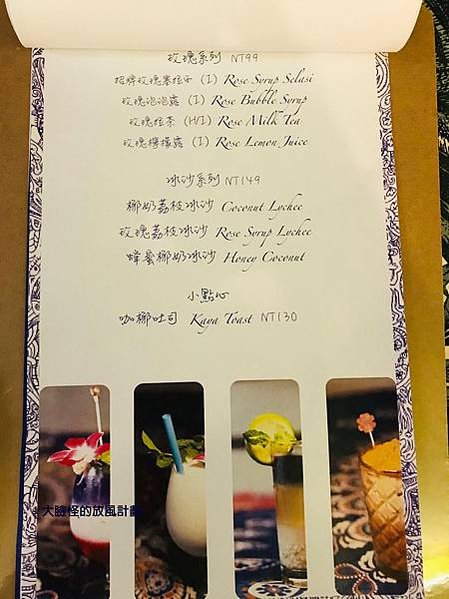 玫瑰系列 NT99
招牌玫瑰塞拉西 (I) Rose Syrup Selasi
玫瑰泡泡露 (I) Rose Bubble Syrup
玫瑰拉茶 (H/I) Rose Milk Tea
玫瑰檸檬露 (I) Rose Lemon Juice
冰沙系列 NT149
椰奶荔枝冰沙 Coconut Lychee
玫瑰荔枝冰沙 Rose Syrup Lychee
蜂蜜椰奶冰沙 Honey Coconut
小點心
咖椰吐司 Kaya Toast NT130
大臉怪的放風計劃